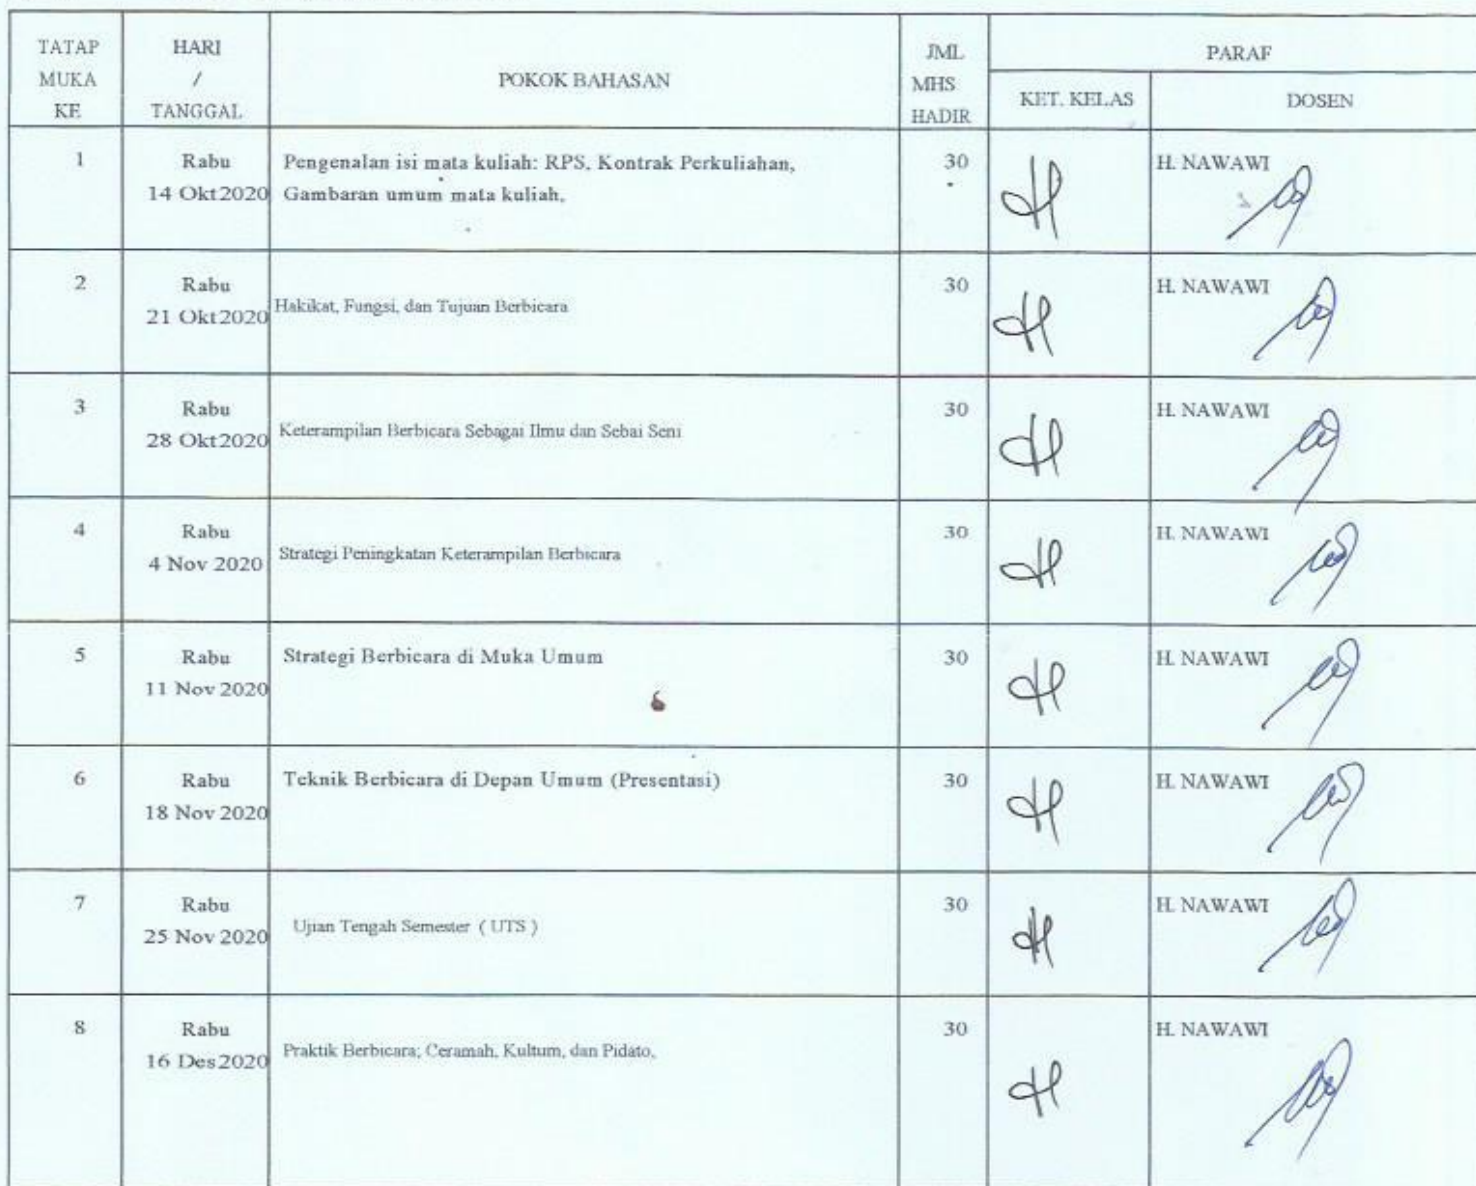 TATAP MUKA KE
HARI / TANGGAL
POKOK BAHASAN
JML MHS HADIR
PARAF
KET. KELAS
DOSEN
1 Rabu 14 Okt2020 Pengenalan isi mata kuliah: RPS, Kontrak Perkuliahan, 30 H. NAWAWI
Gambaran umum mata kuliah,
2 Rabu 21 Okt2020 Hakikat, Fungsi, dan Tujuan Berbicara 30 H. NAWAWI
3 Rabu 28 Okt2020 Keterampilan Berbicara Sebagai Ilmu dan Sebai Seni 30 H. NAWAWI
4 Rabu 4 Nov 2020 Strategi Peningkatan Keterampilan Berbicara 30 H. NAWAWI
5 Rabu 11 Nov 2020 Strategi Berbicara di Muka Umum 30 H. NAWAWI
6 Rabu 18 Nov 2020 Teknik Berbicara di Depan Umum (Presentasi) 30 H. NAWAWI
7 Rabu 25 Nov 2020 Ujian Tengah Semester ( UTS ) 30 H. NAWAWI
8 Rabu 16 Des2020 Praktik Berbicara; Ceramah, Kultum, dan Pidato, 30 H. NAWAWI